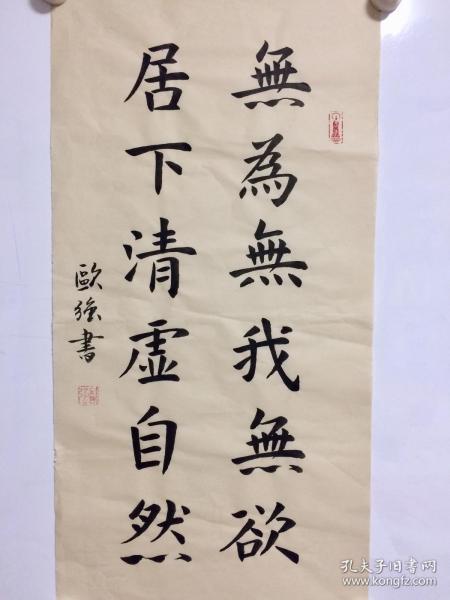 無為無我無欲
居下清虛自然
歐強書
孔夫子旧书网
www.kongfz.com